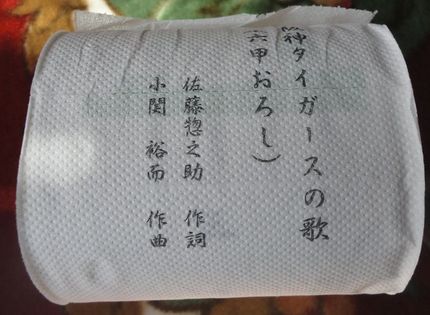 阪神タイガースの歌
(六甲おろし)
佐藤惣之助 作詞
小関 裕而 作曲